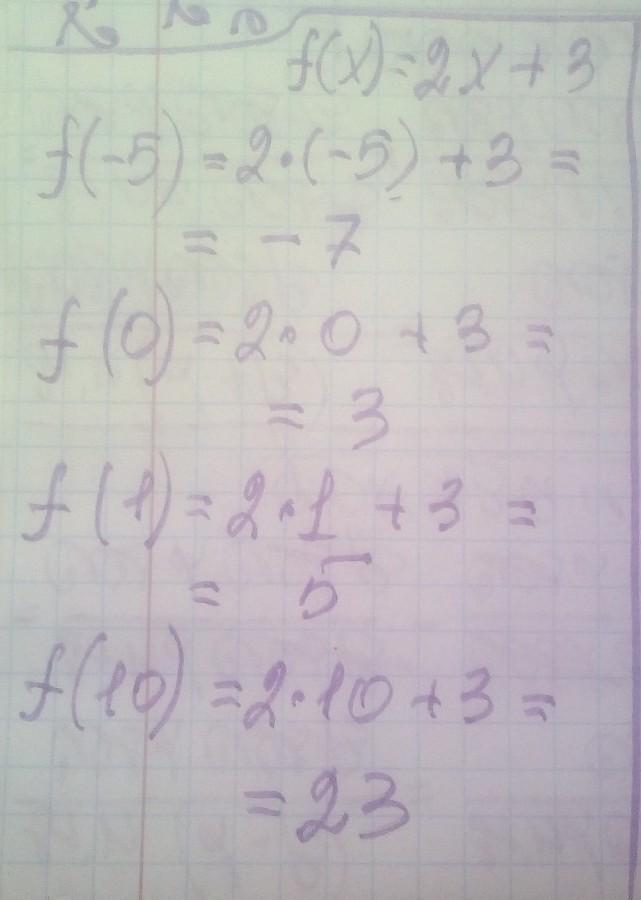 f(x)=2x+3
f(-5)=2·(-5)+3=
= -7
f(0)=2·0+3=
= 3
f(1)=2·1+3=
= 5
f(10)=2·10+3=
=23